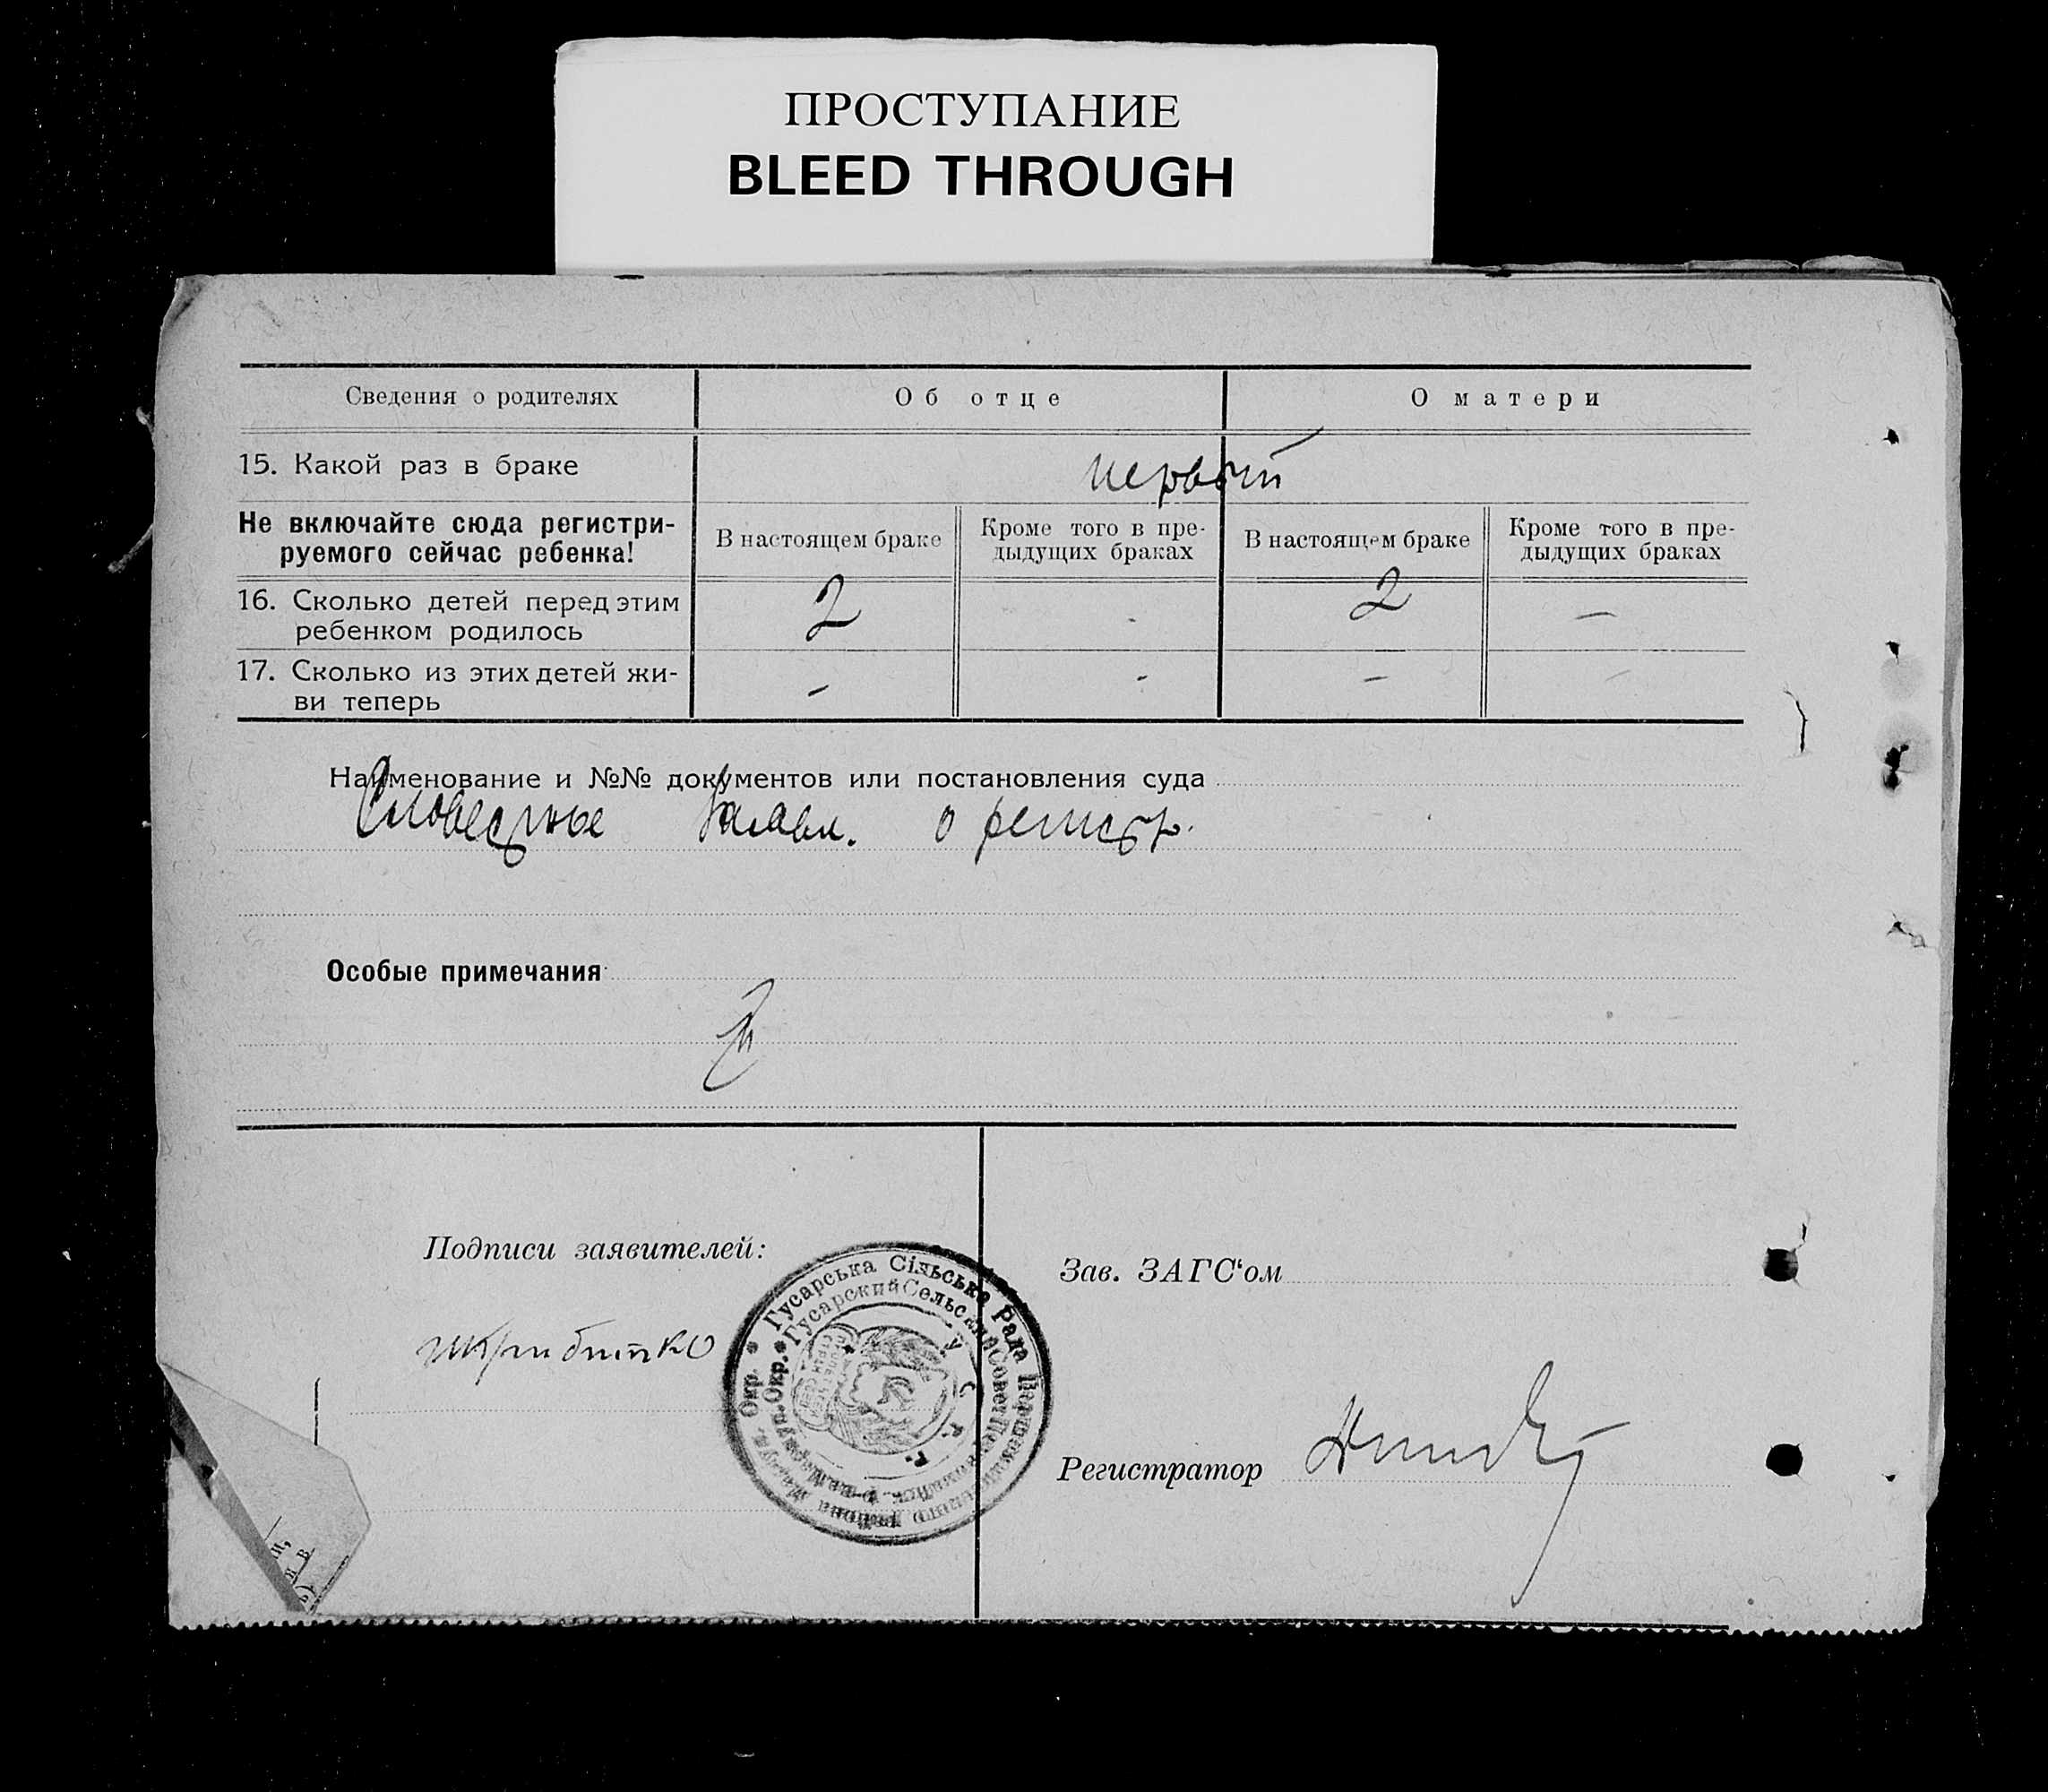 ПРОСТУПАНИЕ
BLEED THROUGH
Сведения о родителях Об отце О матери
15. Какой раз в браке первый
Не включайте сюда регистри-
руемого сейчас ребенка!
В настоящем браке
Кроме того в пре-
дыдущих браках
В настоящем браке
Кроме того в пре-
дыдущих браках
16. Сколько детей перед этим
ребенком родилось
2 - 2 —
17. Сколько из этих детей жи-
ви теперь
- - - -
Наименование и №№ документов или постановления суда
Словесное заявл. о регистр.
Особые примечания
Подписи заявителей:
Гусарська Сільська Рада
Гусарский Сельский Совет
Окр.
Зав. ЗАГС‘ом
Регистратор